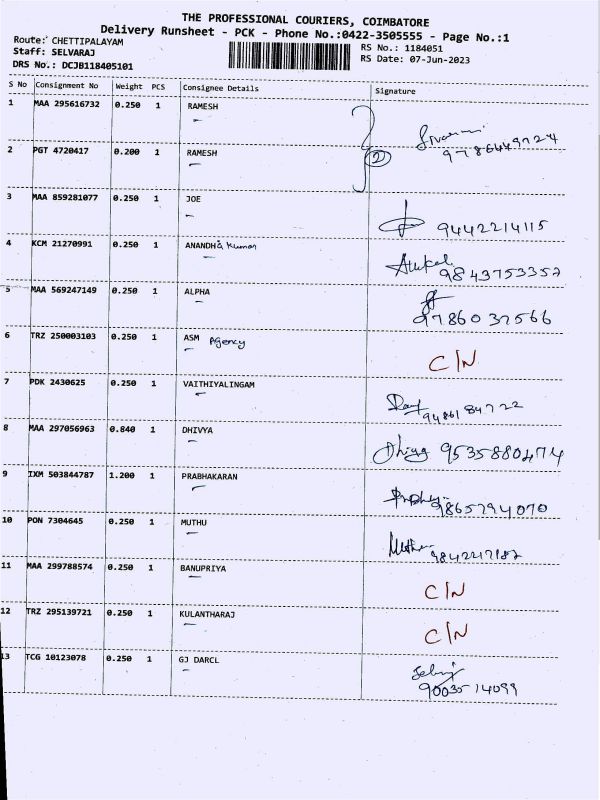 THE PROFESSIONAL COURIERS, COIMBATORE
Delivery Runsheet - PCK - Phone No.:0422-3505555 - Page No.:1
Route: CHETTIPALAYAM RS No.: 1184051
Staff: SELVARAJ RS Date: 07-Jun-2023
DRS No.: DCJB118405101
S No Consignment No Weight PCS Consignee Details Signature
1 MAA 295616732 0.250 1 RAMESH
2 PGT 4720417 0.200 1 RAMESH 2
3 MAA 859281077 0.250 1 JOE 9442214115
4 KCM 21270991 0.250 1 ANANDHA Kumar 9843753352
5 MAA 569247149 0.250 1 ALPHA 9786037566
6 TRZ 250003103 0.250 1 ASM Agency C/N
7 PDK 2430625 0.250 1 VAITHIYALINGAM 9486184722
8 MAA 297056963 0.840 1 DHIVYA Dhivya 9535880474
9 IXM 503844787 1.200 1 PRABHAKARAN
10 PON 7304645 0.250 1 MUTHU
11 MAA 299788574 0.250 1 BANUPRIYA C/N
12 TRZ 295139721 0.250 1 KULANTHARAJ C/N
13 TCG 10123078 0.250 1 GJ DARCL 9003514099